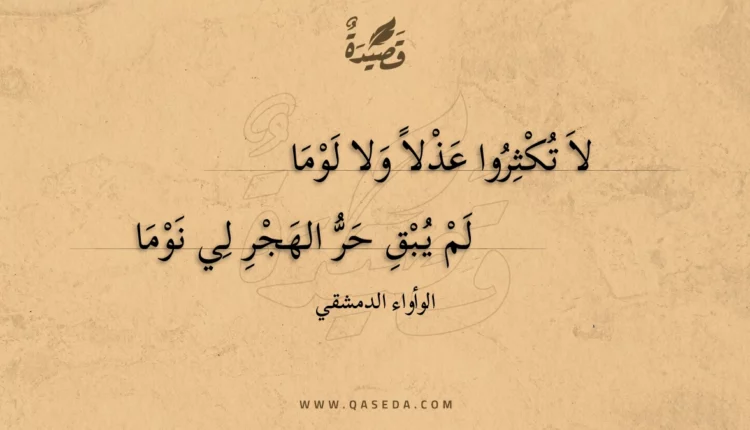 قَصِيدَةٌ
لاَ تُكْثِرُوا عَذْلاً وَلا لَوْمَا
لَمْ يُبْقِ حَرُّ الهَجْرِ لِي نَوْمَا
الوأواء الدمشقي
WWW.QASEDA.COM